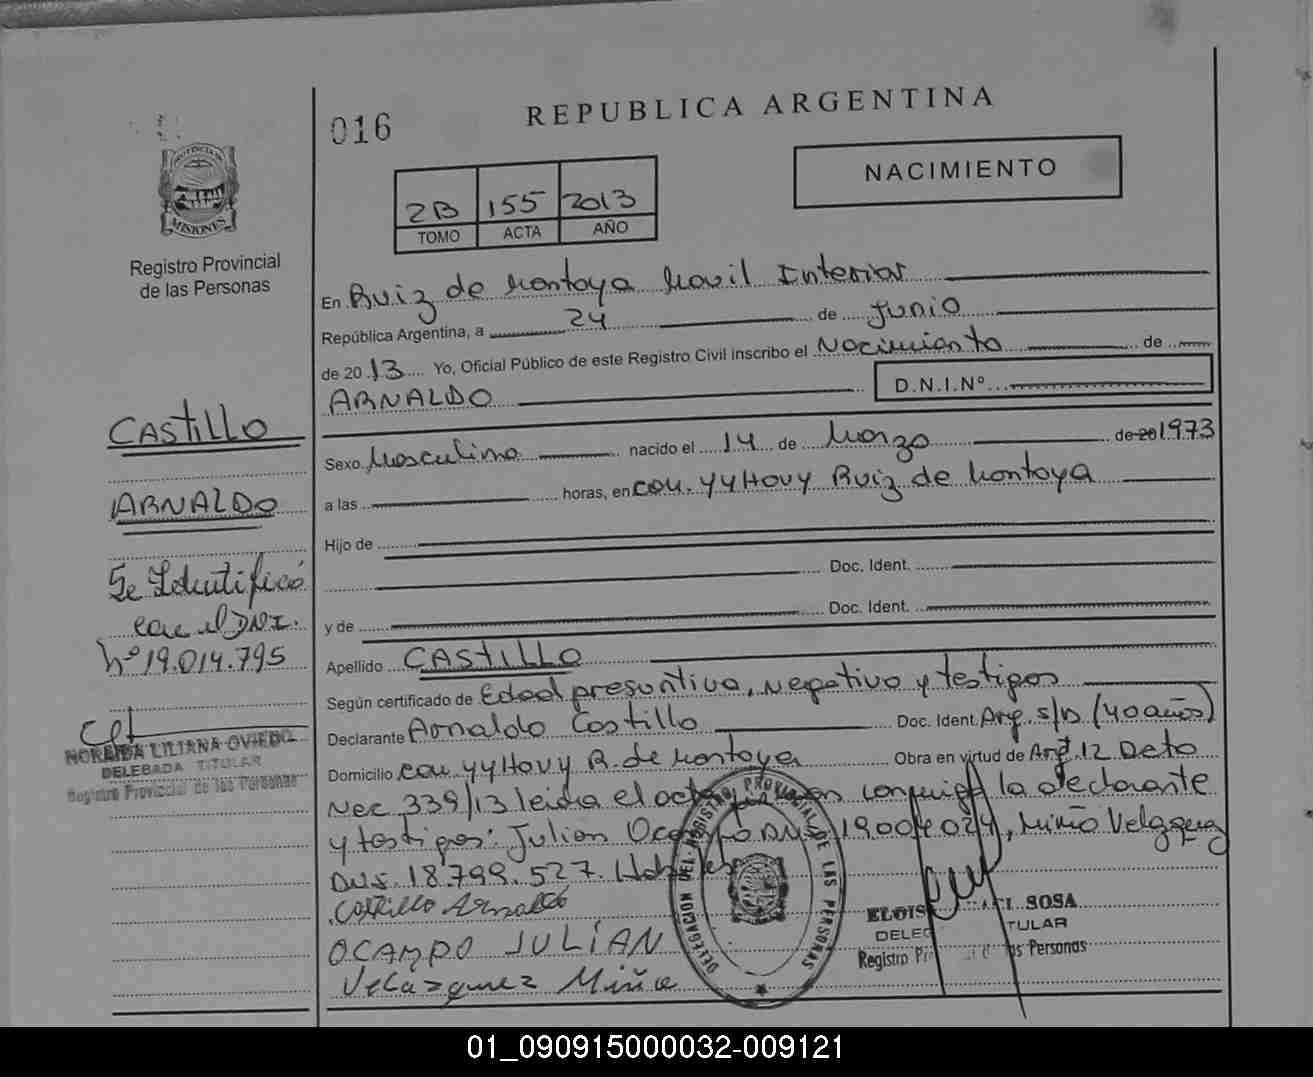 REPUBLICA ARGENTINA
016
NACIMIENTO
PROVINCIA DE
MISIONES
Registro Provincial
de las Personas
2B 155 2013
TOMO ACTA AÑO
En Ruiz de Montoya Movil Interior
República Argentina, a 24 de Junio
de 2013 Yo, Oficial Público de este Registro Civil inscribo el Nacimiento de
ARNALDO D.N.I.Nº
Sexo Masculino nacido el 14 de Marzo de 20 1973
a las horas, en com. YYHOVY Ruiz de Montoya
Hijo de
Doc. Ident.
y de Doc. Ident.
Apellido CASTILLO
Según certificado de Edad presuntiva, negativo y testigos
Declarante Arnaldo Castillo Doc. Ident. Arg. s/D (40 años)
Domicilio com. yyHovy R. de Montoya Obra en virtud de Art. 12 Dcto
Nac. 339/13 leida el acta firman conmigo la declarante
y testigos: Julian Ocampo DNI 19.004.024, Miño Velazquez
DNI. 18.799.527.
Castillo Arnaldo
OCAMPO JULIÁN
Velazquez Miño
CASTILLO
ARNALDO
Se Identificó
con el DNI.
Nº 19.014.795
NORAIDA LILIANA OVIEDO
DELEGADA TITULAR
Registro Provincial de las Personas
DELEGACION DEL REGISTRO PROVINCIAL DE LAS PERSONAS
SOSA
TULAR
Registro de las Personas
01_090915000032-009121